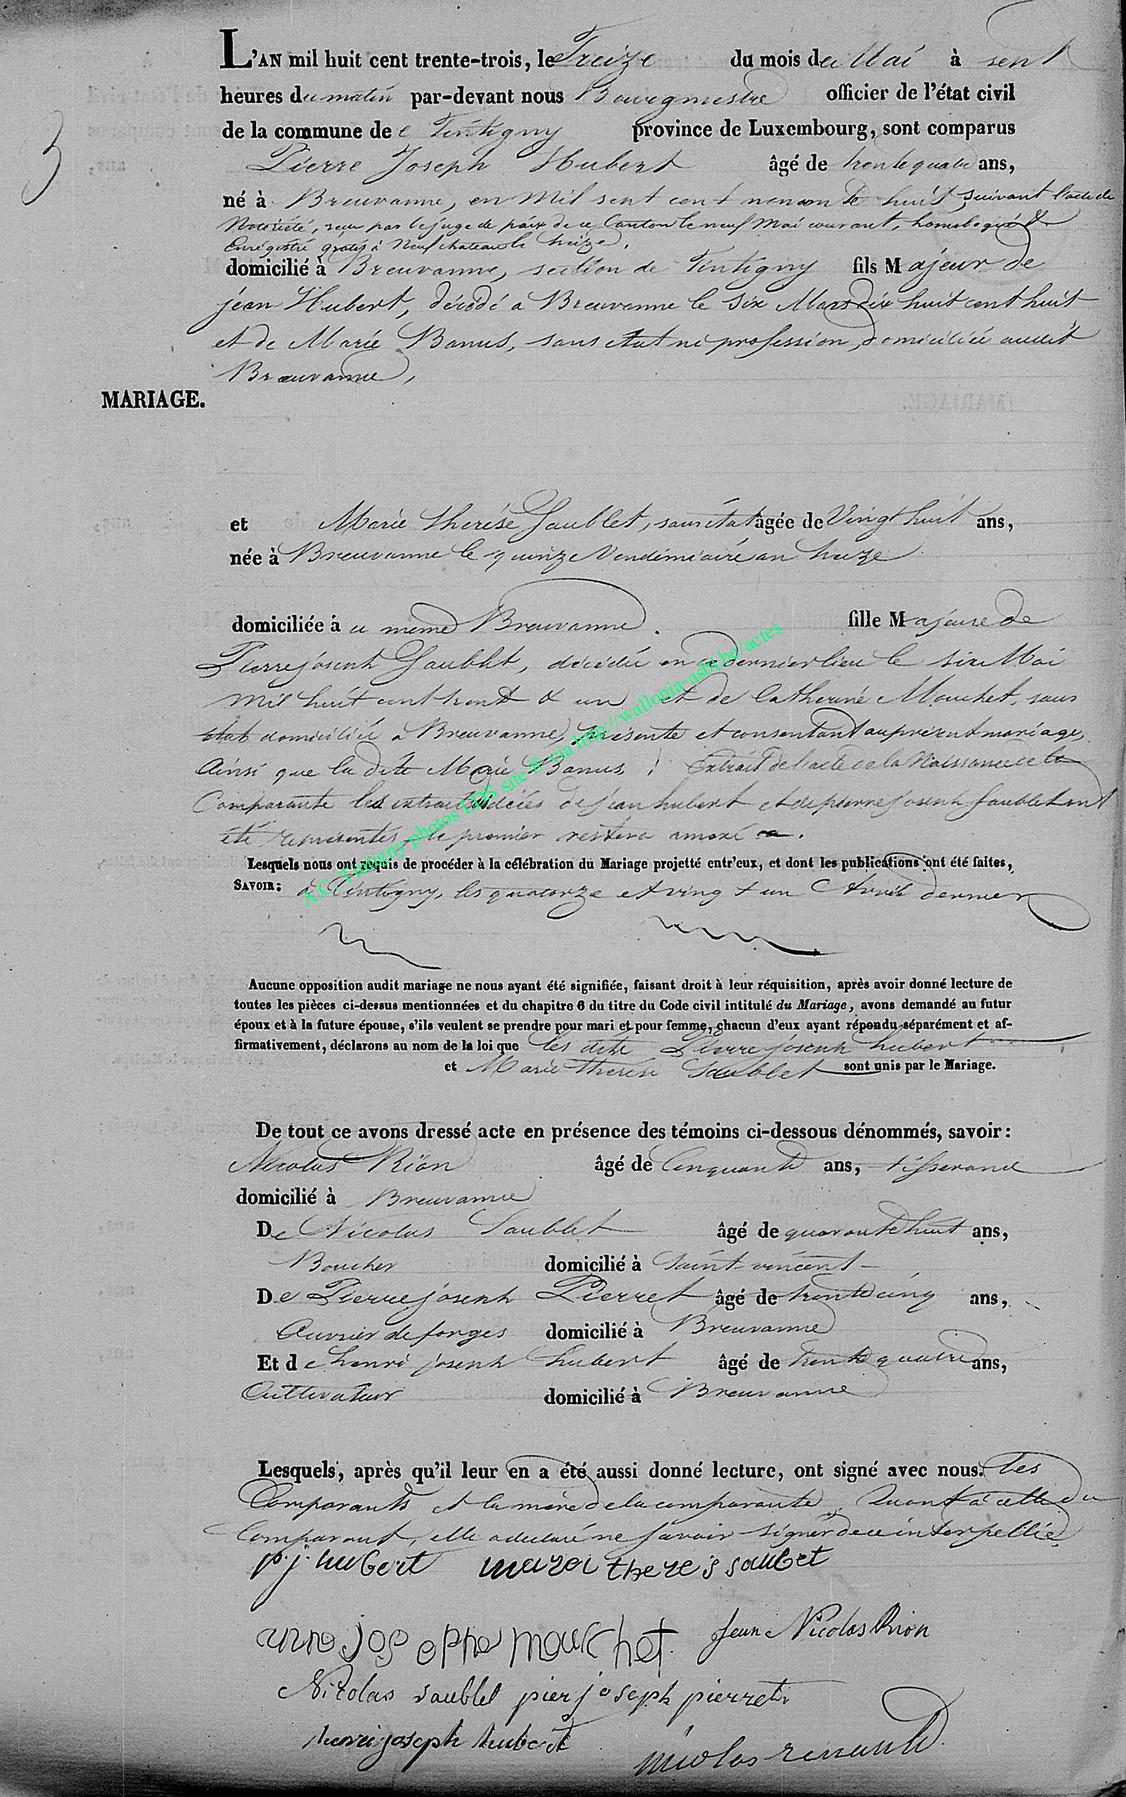 L'AN mil huit cent trente-trois, le Treize du mois de Mai à sept
heures du matin par-devant nous Bourgmestre officier de l'état civil
de la commune de Tintigny province de Luxembourg, sont comparus
Pierre Joseph Hubert âgé de trente quatre ans,
né à Breuvanne, en Mil sept cent nonante huit, suivant l'acte de
Notoriété, reçu par le juge de paix de ce Canton le neuf Mai courant, homologué &
Enrégistré gratis à Neufchateau le treize.
domicilié à Breuvanne, section de Tintigny fils Majeur de
jean Hubert, décédé à Breuvanne le six Mars dix huit cent huit
et de Marie Banus, sans état ni profession, domiciliée audit
Breuvanne,
MARIAGE.
3
et Marie thérèse Saublet, sans état âgée de Vingt huit ans,
née à Breuvanne le quinze Vendémiaire an treize
domiciliée à ce même Breuvanne. fille Majeure de
Pierre joseph Saublet, décédé en ce dernier lieu le six Mai
Mil huit cent trente & un et de Catherine Mouchet, sans
état domiciliée à Breuvanne, présente et consentant au présent mariage,
Ainsi que la dite Marie Banus; Extrait de l'acte de la Naissance de la
Comparante les extraits décès de jean hubert et de pierre joseph Saublet ont
été représentés, le premier restera annexé.
Lesquels nous ont requis de procéder à la célébration du Mariage projetté entr'eux, et dont les publications ont été faites,
SAVOIR; à Tintigny, les quatorze et vingt un Avril dernier
Aucune opposition audit mariage ne nous ayant été signifiée, faisant droit à leur réquisition, après avoir donné lecture de
toutes les pièces ci-dessus mentionnées et du chapitre 6 du titre du Code civil intitulé du Mariage, avons demandé au futur
époux et à la future épouse, s'ils veulent se prendre pour mari et pour femme, chacun d'eux ayant répondu séparément et af-
firmativement, déclarons au nom de la loi que les dits Pierre joseph hubert
et Marie thérèse Saublet sont unis par le Mariage.
De tout ce avons dressé acte en présence des témoins ci-dessous dénommés, savoir:
Nicolas Rion âgé de Cinquante ans, tisserand
domicilié à Breuvanne
De Nicolas Saublet âgé de quarante huit ans,
Boucher domicilié à Saint-vincent
De Pierre joseph Pierret âgé de trente cinq ans,
Ouvrier de forges domicilié à Breuvanne
Et de henri joseph hubert âgé de trente quatre ans,
Cultivateur domicilié à Breuvanne
Lesquels, après qu'il leur en a été aussi donné lecture, ont signé avec nous. Les
Comparants et la mère de la comparante, Quant à celle du
Comparant, elle a déclaré ne savoir signer de ce interpellée
p. j. hubert marai theres saublet
anne josepphe mouchet. Jean Nicolas Rion
Nicolas saublet pierj joseph pierret
henri joseph hubert
nicolas renauld
A.C. Tintigny photos LDS site @ via http://wallonia-asbl.be/actes